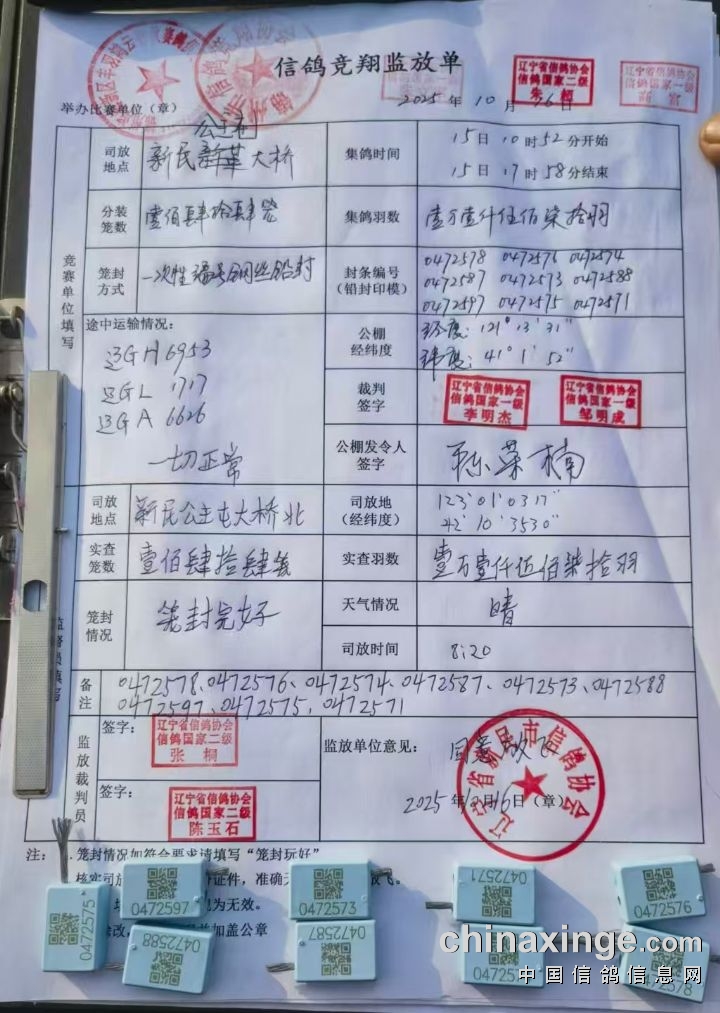 信鸽竞翔监放单
举办比赛单位（章） 2025 年 10 月 16 日
辽宁省信鸽协会
信鸽国家一级
辽宁省信鸽协会
信鸽国家一级
竞赛单位填写
司放地点
公主屯
新民新革大桥
集鸽时间
15日 10时52分开始
15日 17时58分结束
分装笼数
壹佰肆拾肆笼
集鸽羽数
壹万壹仟伍佰柒拾羽
笼封方式
一次性编号钢丝铅封
封条编号
（铅封印模）
0472578 0472576 0472574
0472587 0472573 0472588
0472597 0472575 0472571
途中运输情况：
辽GH6953
辽GL 1717
辽GA 6626
一切正常
公棚
经纬度
经度：121°13'31"
纬度：41°1'52"
裁判
签字
辽宁省信鸽协会
信鸽国家一级
李明杰
辽宁省信鸽协会
信鸽国家一级
邹明成
公棚发令人
签字
司放地点
新民公主屯大桥北
司放地
（经纬度）
123°01'0317"
42°10'3530"
实查笼数
壹佰肆拾肆笼
实查羽数
壹万壹仟伍佰柒拾羽
笼封情况
笼封完好
天气情况
晴
司放时间
8:20
备注
0472578、0472576、0472574、0472587、0472573、0472588
0472597、0472575、0472571
监放裁判员
签字：
辽宁省信鸽协会
信鸽国家二级
张 桐
签字：
辽宁省信鸽协会
信鸽国家二级
陈玉石
监放单位意见：
同意放飞
2025年10月16日（章）
市信鸽协会
注：
笼封情况如符合要求请填写“笼封玩好”
证件，准确
为无效。
加盖公章
0472575
0472597
0472588
0472573
0472587
0472571
0472576
chinaxinge.com
中国信鸽信息网